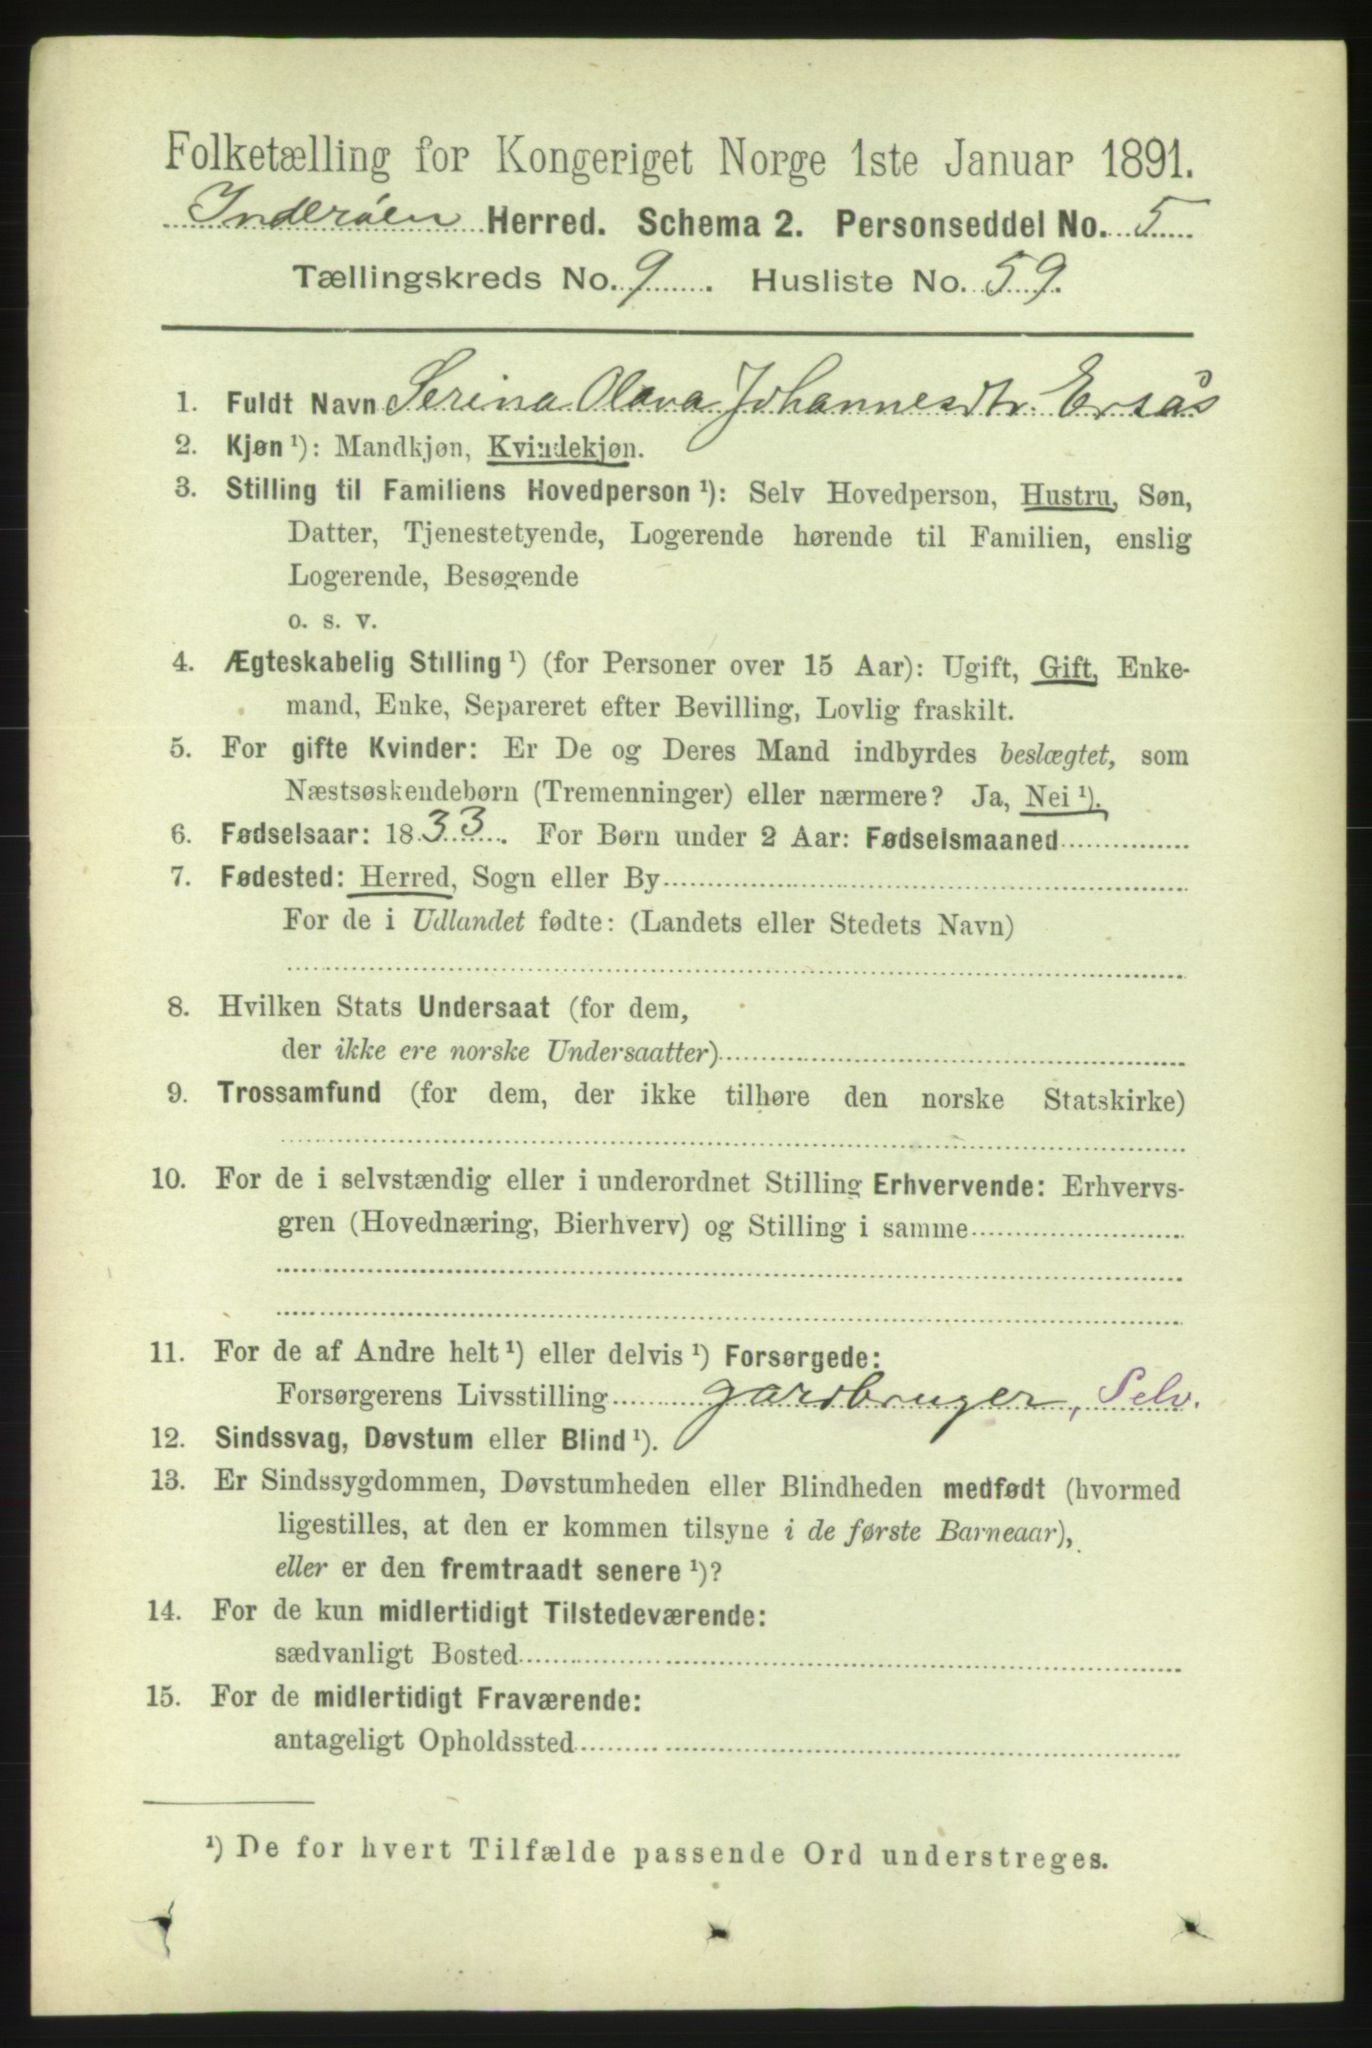 Folketælling for Kongeriget Norge 1ste Januar 1891.
Inderøen Herred. Schema 2. Personseddel No. 5
Tællingskreds No. 9. Husliste No. 59.
1. Fuldt Navn Serina Olava Johannesdtr. Ersås
2. Kjøn ¹): Mandkjøn, Kvindekjøn.
3. Stilling til Familiens Hovedperson ¹): Selv Hovedperson, Hustru, Søn,
Datter, Tjenestetyende, Logerende hørende til Familien, enslig
Logerende, Besøgende
o. s. v.
4. Ægteskabelig Stilling ¹) (for Personer over 15 Aar): Ugift, Gift, Enke-
mand, Enke, Separeret efter Bevilling, Lovlig fraskilt.
5. For gifte Kvinder: Er De og Deres Mand indbyrdes beslægtet, som
Næstsøskendebørn (Tremenninger) eller nærmere? Ja, Nei ¹).
6. Fødselsaar: 1833. For Børn under 2 Aar: Fødselsmaaned
7. Fødested: Herred, Sogn eller By
For de i Udlandet fødte: (Landets eller Stedets Navn)
8. Hvilken Stats Undersaat (for dem,
der ikke ere norske Undersaatter)
9. Trossamfund (for dem, der ikke tilhøre den norske Statskirke)
10. For de i selvstændig eller i underordnet Stilling Erhvervende: Erhvervs-
gren (Hovednæring, Bierhverv) og Stilling i samme
11. For de af Andre helt ¹) eller delvis ¹) Forsørgede:
Forsørgerens Livsstilling gardbruger, Selv.
12. Sindssvag, Døvstum eller Blind ¹).
13. Er Sindssygdommen, Døvstumheden eller Blindheden medfødt (hvormed
ligestilles, at den er kommen tilsyne i de første Barneaar),
eller er den fremtraadt senere ¹)?
14. For de kun midlertidigt Tilstedeværende:
sædvanligt Bosted
15. For de midlertidigt Fraværende:
antageligt Opholdssted
¹) De for hvert Tilfælde passende Ord understreges.